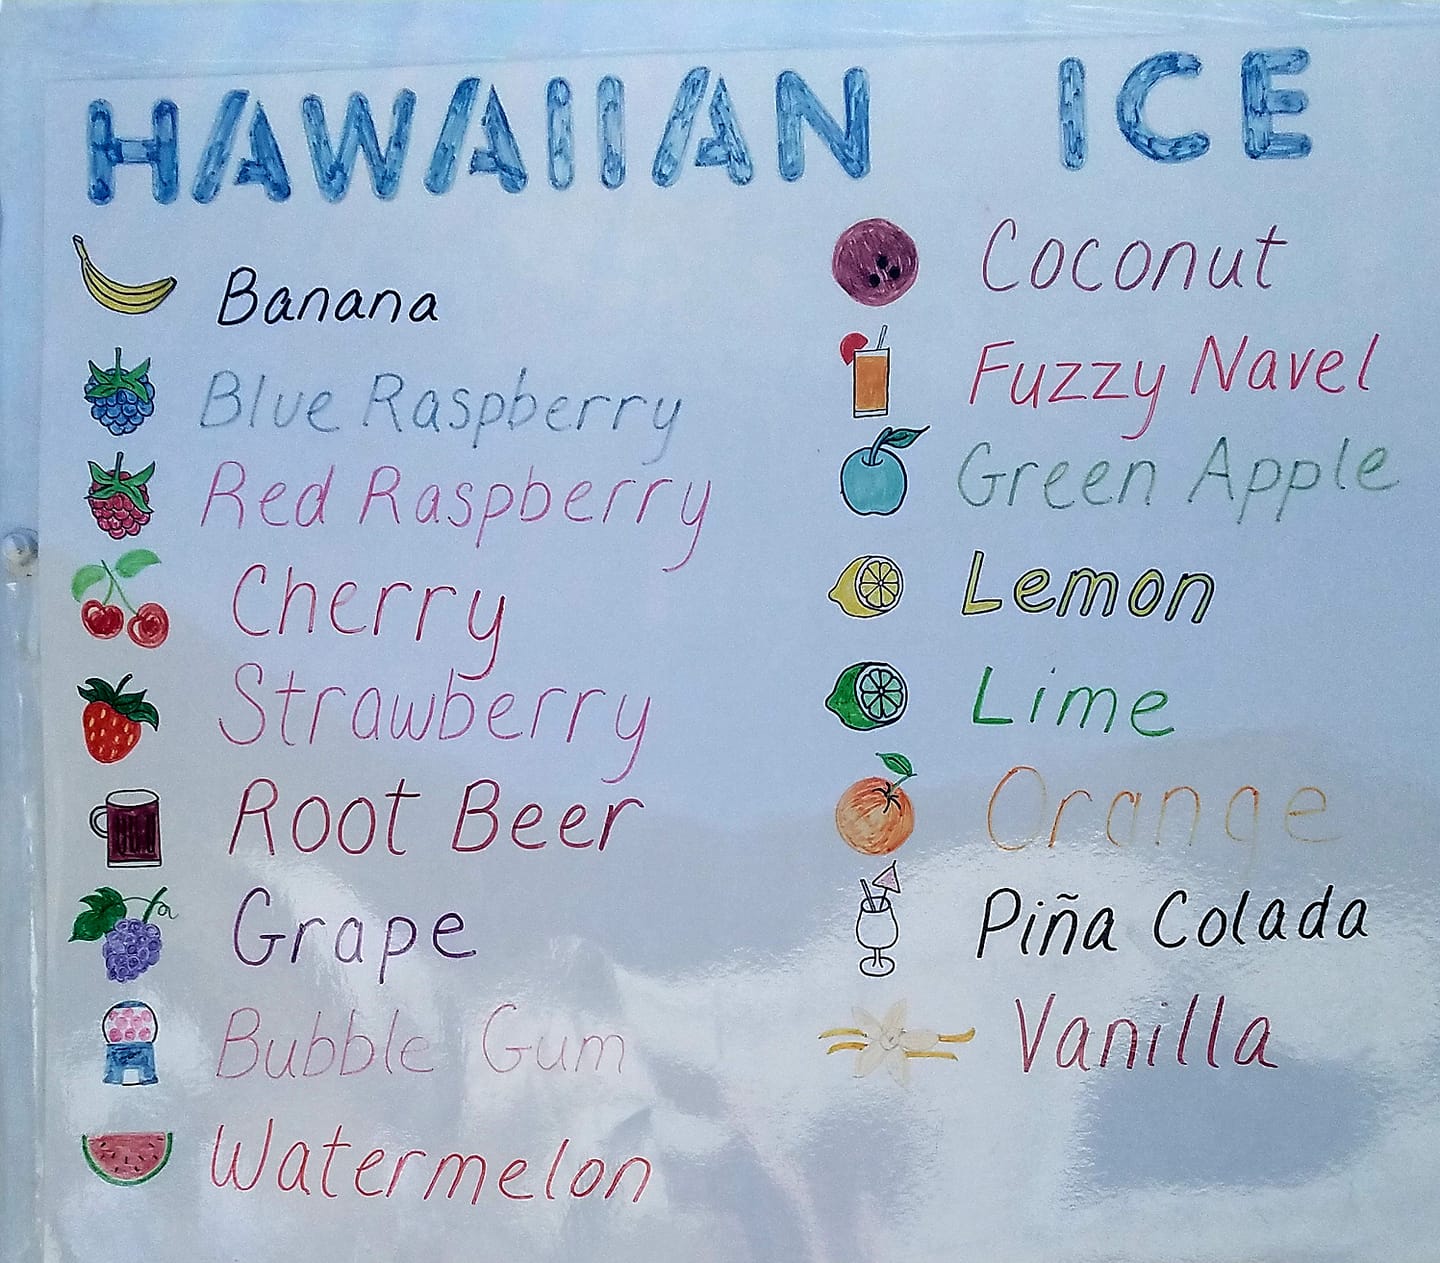 HAWAIIAN ICE
Banana
Blue Raspberry
Red Raspberry
Cherry
Strawberry
Root Beer
Grape
Bubble Gum
Watermelon
Coconut
Fuzzy Navel
Green Apple
Lemon
Lime
Orange
Piña Colada
Vanilla